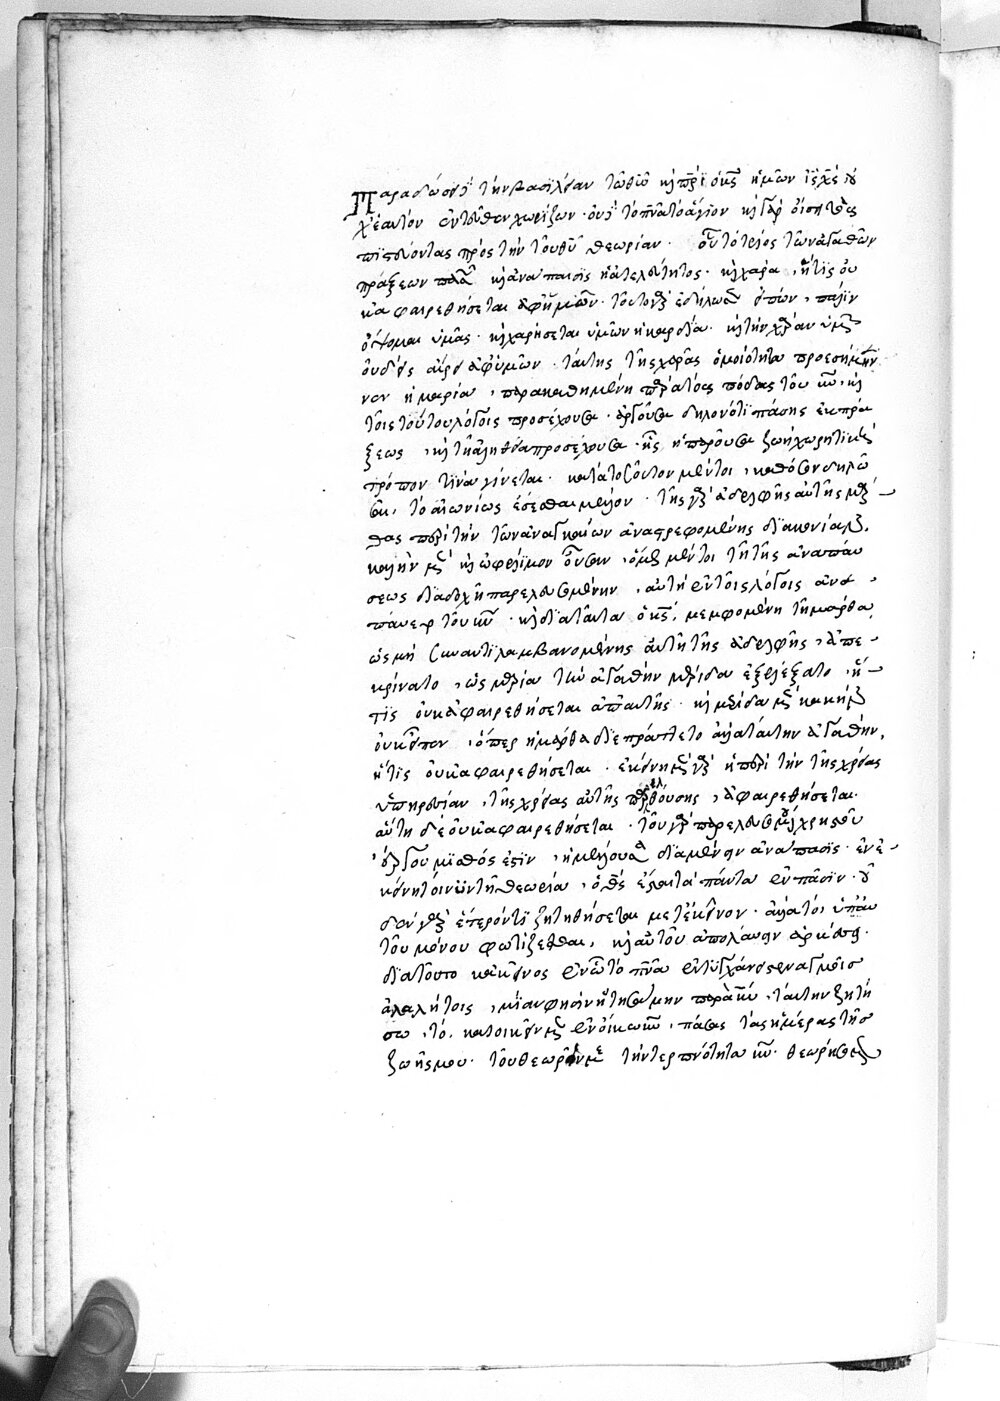 Παραδώσει τὴν βασιλείαν τῶ θεῶ κὶ πρὶ ὁ κς ἡμῶν ις χς· οὐ
χ' ἑαυτὸν ἐντεῦθεν χωρίζων· οὐδὲ τὸ πνα τὸ ἅγιον κὶ γὰρ
πιστεύοντας πρὸς τὴν τοῦ θυ θεωρίαν· τοῦτο τέλος τῶν ἀγαθῶν
πράξεων κὶ ἀνάπαυσις ἡ ἀτελεύτητος· κὶ χαρὰ, ἥτις οὐ
κ ἀφαιρεθήσεται ἀφ' ἡμῶν· τοῦτο γὰρ ἐδήλωσεν εἰπών, πάλιν
ὄψομαι ὑμᾶς· κὶ χαρήσεται ὑμῶν ἡ καρδία· κὶ τὴν χαρὰν ὑμῶν
οὐδεὶς αἴρει ἀφ' ὑμῶν· ταύτης τῆς χαρᾶς ὁμοιότητα προεσήμαι
νεν ἡ μαρία, παρακαθημένη παρὰ τοὺς πόδας τοῦ κυ, κὶ
τοῖς τούτου λόγοις προσέχουσα· ἀργοῦσα δηλονότι πάσης ἐκ πρά
ξεως, κὶ τῆ ἀληθεία προσέχουσα· ἧς ἡ παροῦσα ζωὴ χωρητικὴ
τρόπον τινὰ γίνεται· κατὰ τοσοῦτον μέντοι, καθόσον δηλῶ
σαι, τὸ αἰωνίως ἐσόμενον· τῆς γὰρ ἀδελφῆς αὐτῆς μάρ
θας περὶ τὴν τῶν ἀναγκαίων ἀναστρεφομένης διακονίαν,
καλὴν μὲν κὶ ὠφέλιμον οὖσαν, ὅμως μέντοι τῆ τῆς ἀναπαύ
σεως διαδοχῆ παρελευσομένην, αὐτὴ ἐν τοῖς λόγοις ἀνε
παύετο τοῦ κυ· κὶ διὰ ταῦτα ὁ κς, μεμφομένη τῆ μάρθα
ὡς μὴ συναντιλαμβανομένης αὐτῆ τῆς ἀδελφῆς, ἀπε
κρίνατο, ὡς μαρία τὴν ἀγαθὴν μερίδα ἐξελέξατο, ἥ
τις οὐκ ἀφαιρεθήσεται ἀπ' αὐτῆς· κὶ μερίδα μὲν κακὴν
οὐκ εἶπεν, ὅπερ ἡ μάρθα διεπράττετο ἀλλὰ ταύτην ἀγαθήν,
ἥτις οὐκ ἀφαιρεθήσεται· ἐκείνη μὲν γὰρ ἡ περὶ τὴν τῆς χρείας
ὑπηρεσίαν, τῆς χρείας αὐτῆς παρελθούσης, ἀφαιρεθήσεται·
αὕτη δὲ οὐκ ἀφαιρεθήσεται· τοῦ γὰρ παρελευσομένου χρηστοῦ
ἔργου μισθός ἐστιν, ἡ μέλλουσα διαμένειν ἀνάπαυσις· ἐν ἐ
κείνη τοίνυν τῆ θεωρία, ὁ θς ἔσται τὰ πάντα ἐν πᾶσιν· οὐ
δὲν γὰρ ἕτερόν τι ζητηθήσεται μετ' ἐκεῖνον· ἀλλὰ τὸ, ὑπ' αὐ
τοῦ μόνου φωτίζεσθαι, κὶ αὐτοῦ ἀπολαύειν ἀρκέσει·
διὰ τοῦτο κἀκεῖνος ἐν ὧ τὸ πνα ἐντυγχάνει στεναγμοῖς
ἀλαλήτοις, μίαν φησὶν ἠτησάμην παρὰ κυ, ταύτην ζητή
σω, τὸ, κατοικεῖν με ἐν οἴκω κυ, πάσας τὰς ἡμέρας τῆς
ζωῆς μου· τοῦ θεωρεῖν με τὴν τερπνότητα κυ· θεωρήσομεν